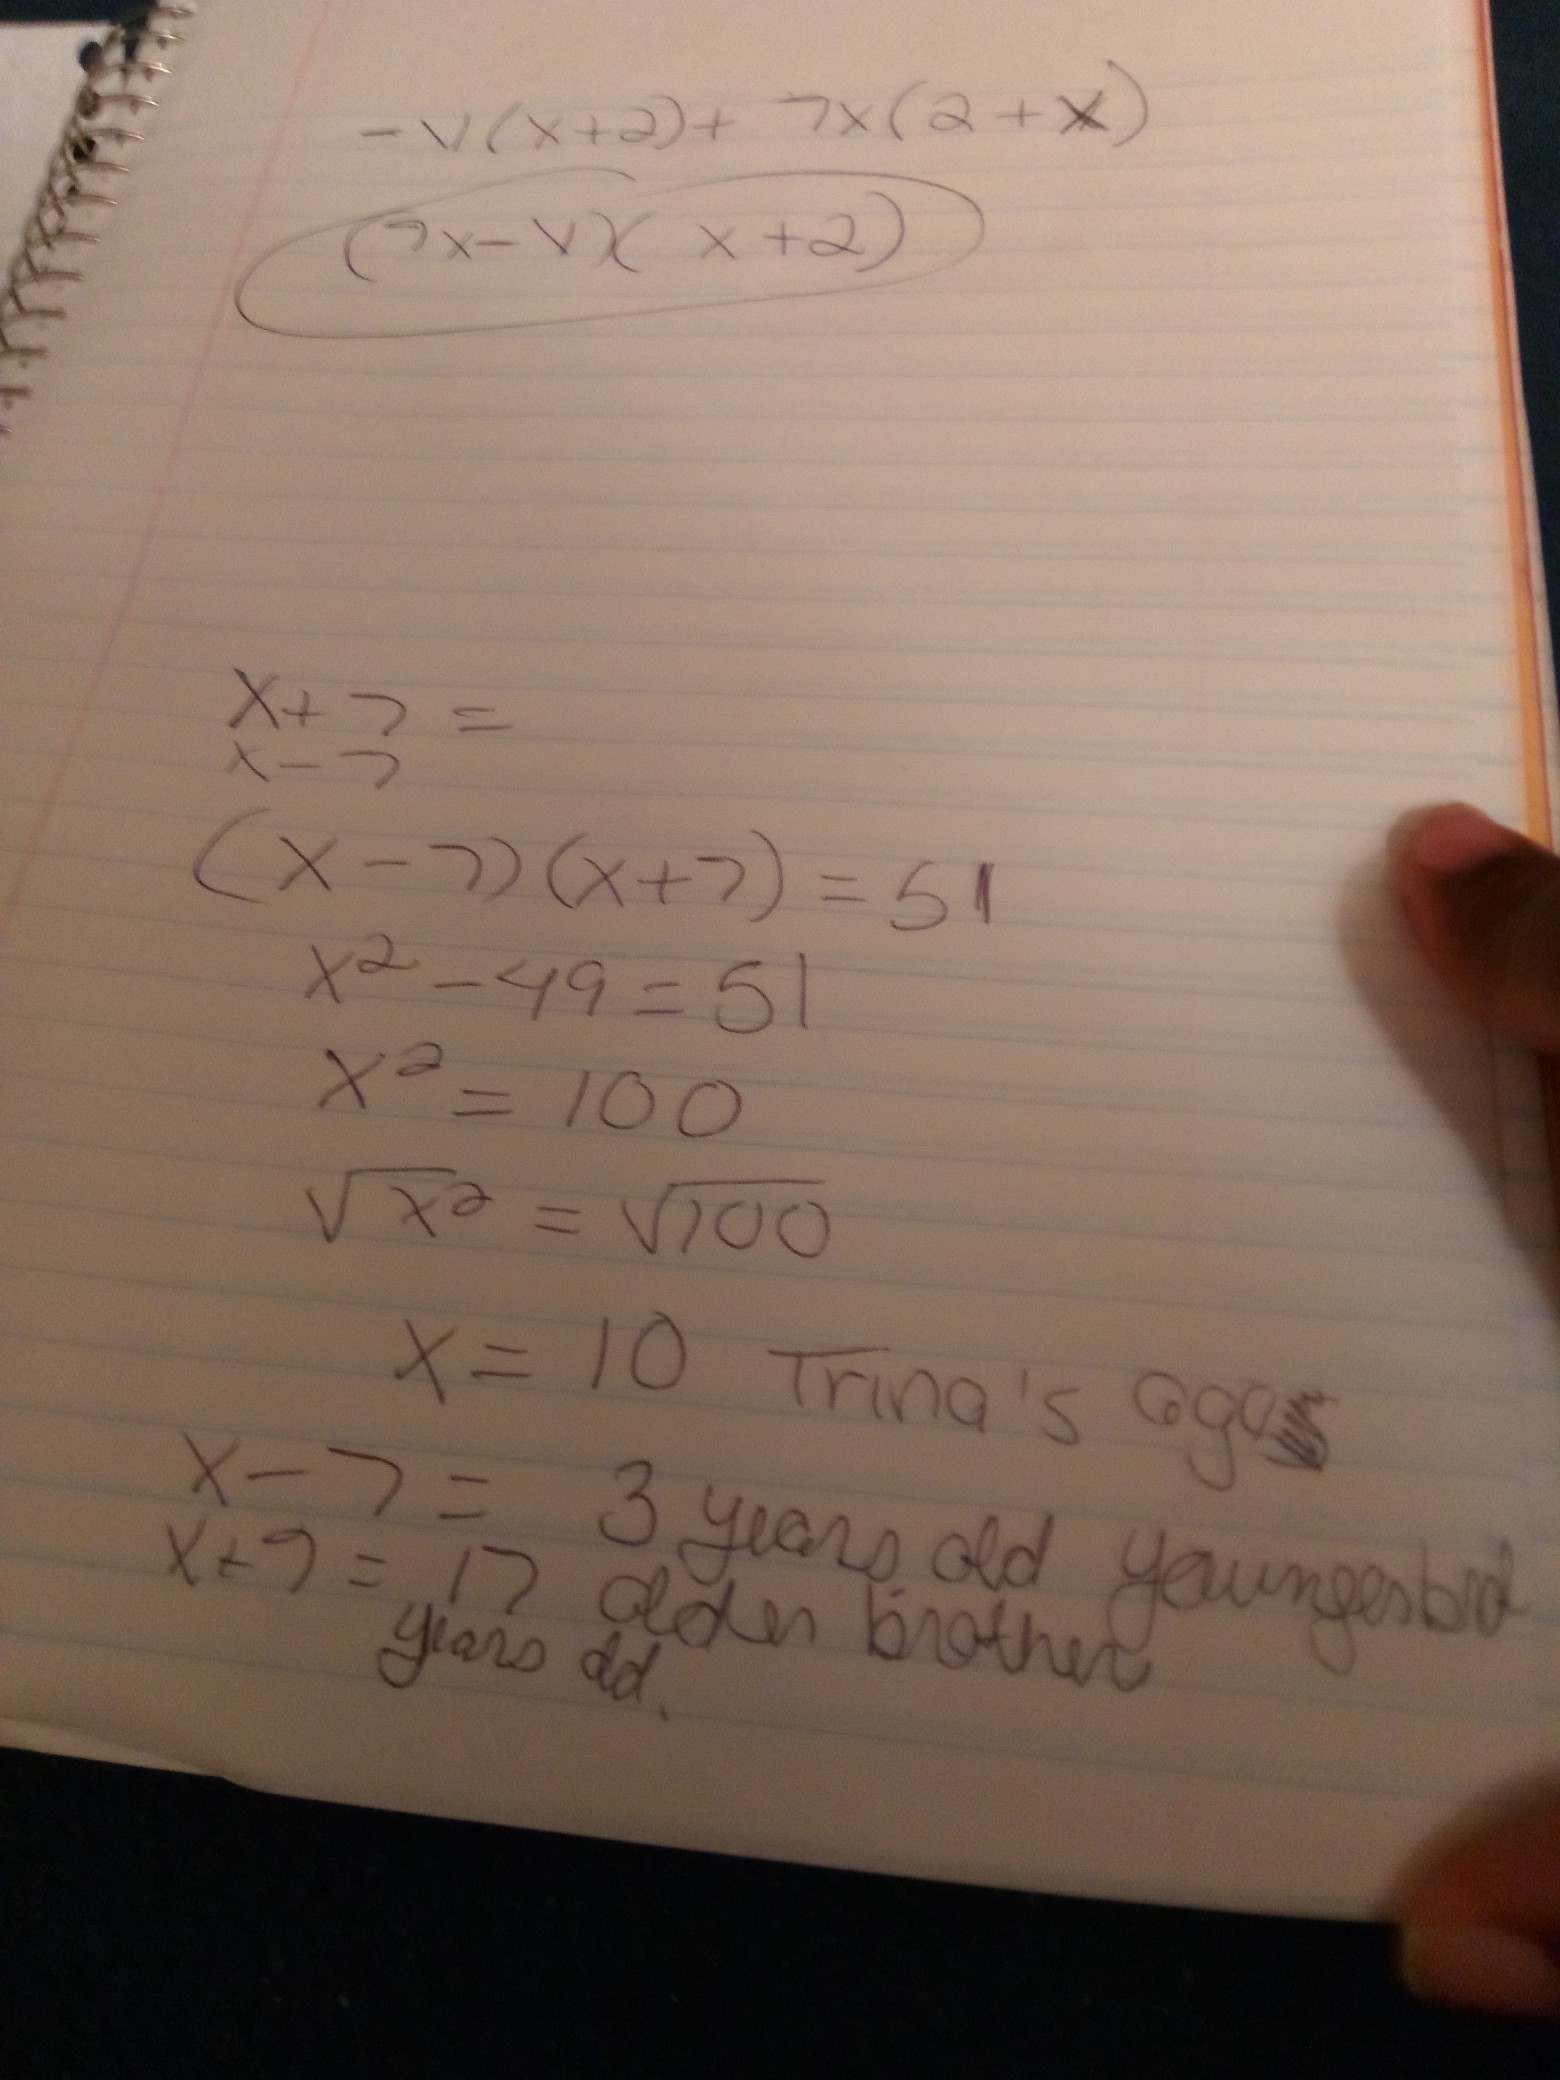 -v(x+2)+ 7x(2+x)
(7x-v)(x+2)
x+7=
x-7
(x-7)(x+7)=51
x²-49=51
x²=100
√x²=√100
x=10 Trina's age
x-7= 3 years old younger bro
x+7=17 older brother
years old.